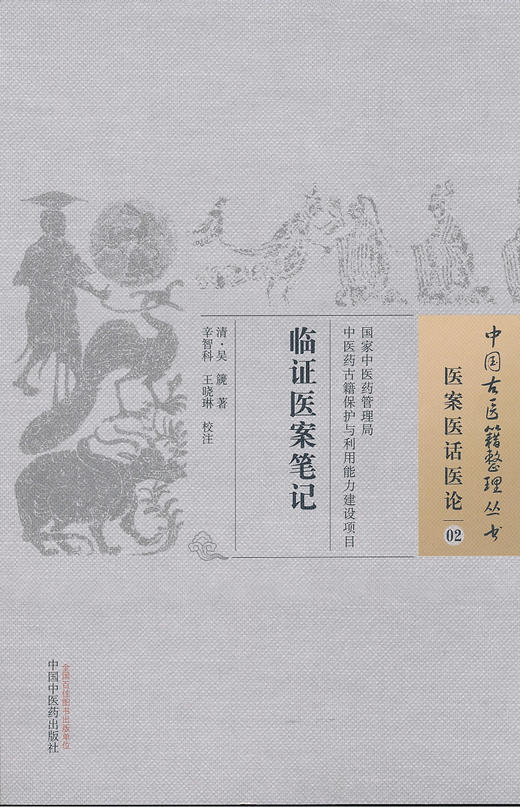 中国古医籍整理丛书
医案医话医论 02
国家中医药管理局
中医药古籍保护与利用能力建设项目
临证医案笔记
清·吴篪 著
辛智科 王晓琳 校注
全国百佳图书出版单位
中国中医药出版社